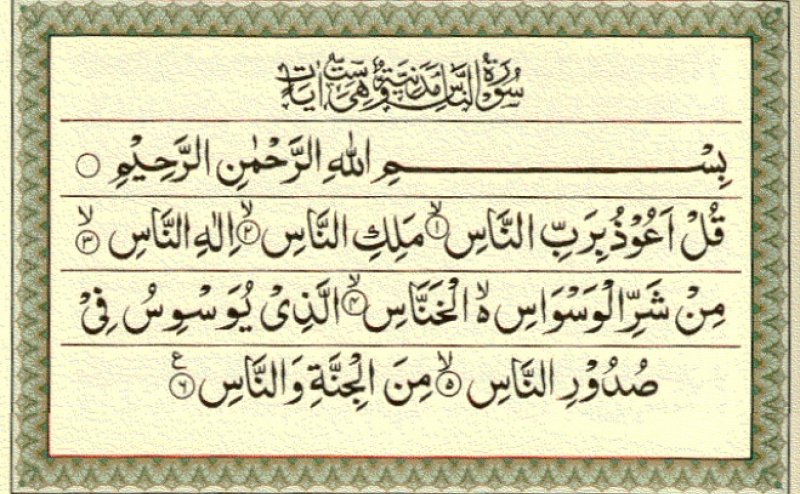 سُوْرَةُ النَّاسِ مَدَنِيَّةٌ وَّهِىَ سِتُّ اٰيَاتٍ
بِسْــــــــــمِ اللّٰهِ الرَّحْمٰنِ الرَّحِيْمِ ○
قُلْ اَعُوْذُ بِرَبِّ النَّاسِ ۙ﴿۱﴾ مَلِكِ النَّاسِ ۙ﴿۲﴾ اِلٰهِ النَّاسِ ۙ﴿۳﴾
مِنْ شَرِّ الْوَسْوَاسِ ۙ۵ الْخَنَّاسِ ۙ﴿۴﴾ الَّذِىْ يُوَسْوِسُ فِىْ
صُدُوْرِ النَّاسِ ۙ﴿۵﴾ مِنَ الْجِنَّةِ وَالنَّاسِ ﴿۶﴾ ع